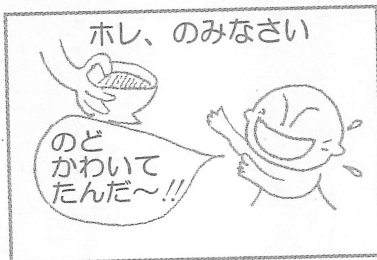 ホレ、のみなさい
のど
かわいて
たんだ〜!!